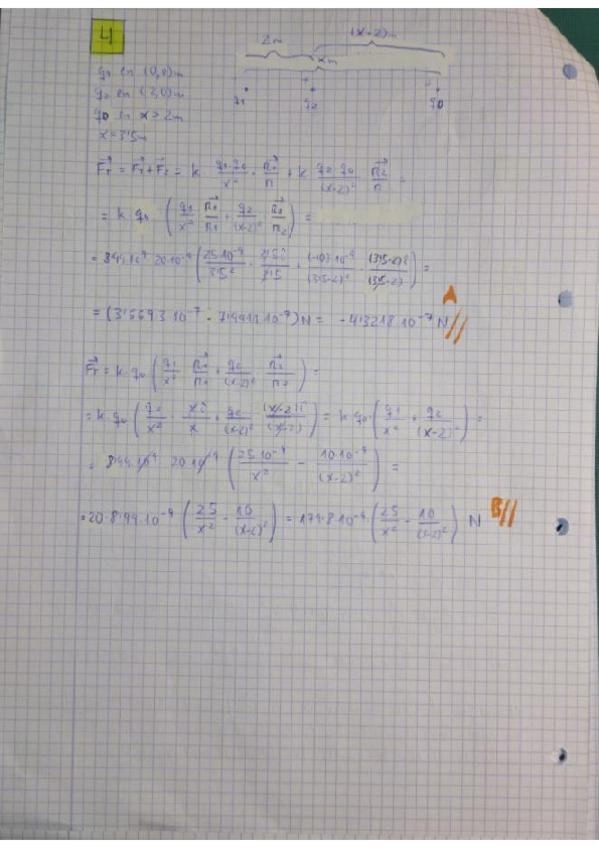 4
2m (x-2)m
xm
q₁ en (0,0)m
q₂ en (2,0)m
q₀ en x > 2m
x = 3'5m
q₁ q₂ q₀
F⃗ᵣ = F⃗₁ + F⃗₂ = k · q₁·q₀/x² · r⃗₁/r₁ + k q₂·q₀/(x-2)²
= k q₀ · (q₁/x² r⃗₁/r₁ + q₂/(x-2)²
= 8'99·10⁹ · 20·10⁻⁹ (25·10⁻⁹/3'5² · 3'5i⃗/3'5 + (-10)·10⁻⁹/(3'5-2)² · (3'5-2)i⃗/(3'5-2)) =
N =
A
F⃗ᵣ = k·q₀ (q₁/x² r⃗₁/r₁ + q₂/(x-2)² r⃗₂/r₂) =
= k·q₀ (q₁/x² · xi⃗/x + q₂/(x-2)² (x-2)i⃗/(x-2)) = k·q₀·(q₁/x² + q₂/(x-2)²) =
= 8'99·10⁹ · 20·10⁻⁹ (25·10⁻⁹/x² − 10·10⁻⁹/(x-2)²) =
= 20·8'99·10⁻⁹ (25/x² − 10/(x-2)²) = 179'8·10⁻⁹·(25/x² − 10/(x-2)²) N B//